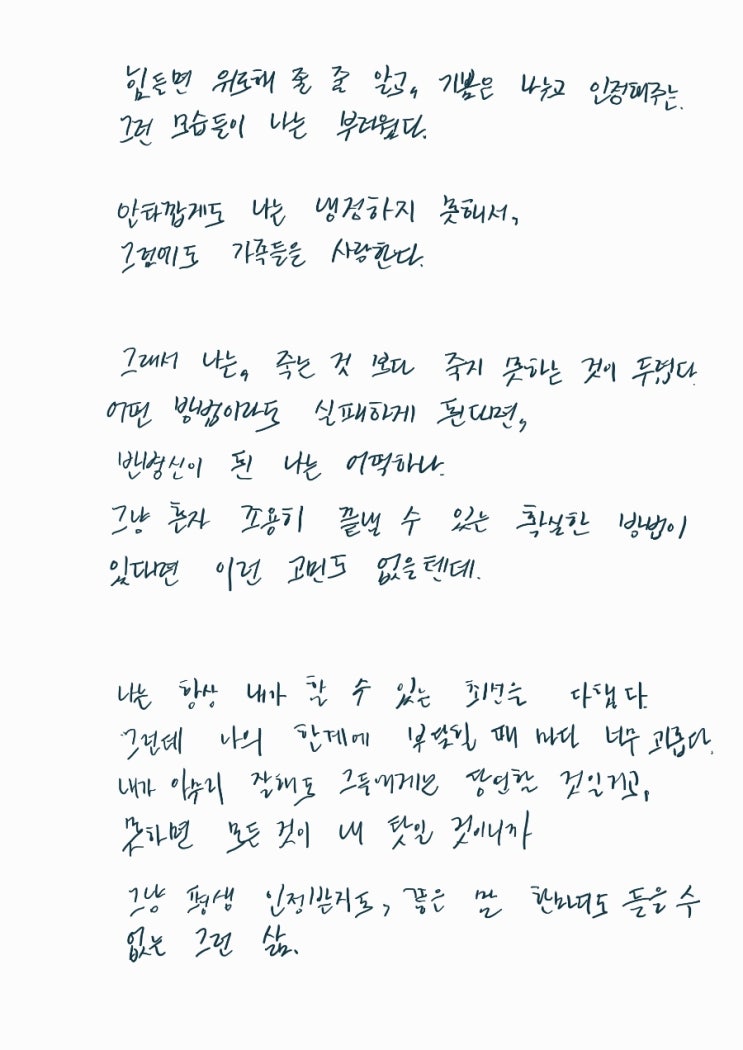 힘들면 위로해 줄 줄 알고, 기쁨은 나누고 인정해주는.
그런 모습들이 나는 부러웠다.
안타깝게도 나는 냉정하지 못해서,
그럼에도 가족들을 사랑한다.
그래서 나는, 죽는 것 보다 죽지 못하는 것이 두렵다.
어떤 방법이라도 실패하게 된다면,
반병신이 된 나는 어떡하나.
그냥 혼자 조용히 끝낼 수 있는 확실한 방법이
있다면 이런 고민도 없을텐데.
나는 항상 내가 할 수 있는 최선을 다했다.
그런데 나의 한계에 부딪힐 때 마다 너무 괴롭다.
내가 아무리 잘해도 그들에게는 당연할 것일거고,
못하면 모든 것이 내 탓일 것이니까
그냥 평생 인정받지도, 좋은 말 한마디도 들을 수
없는 그런 삶.